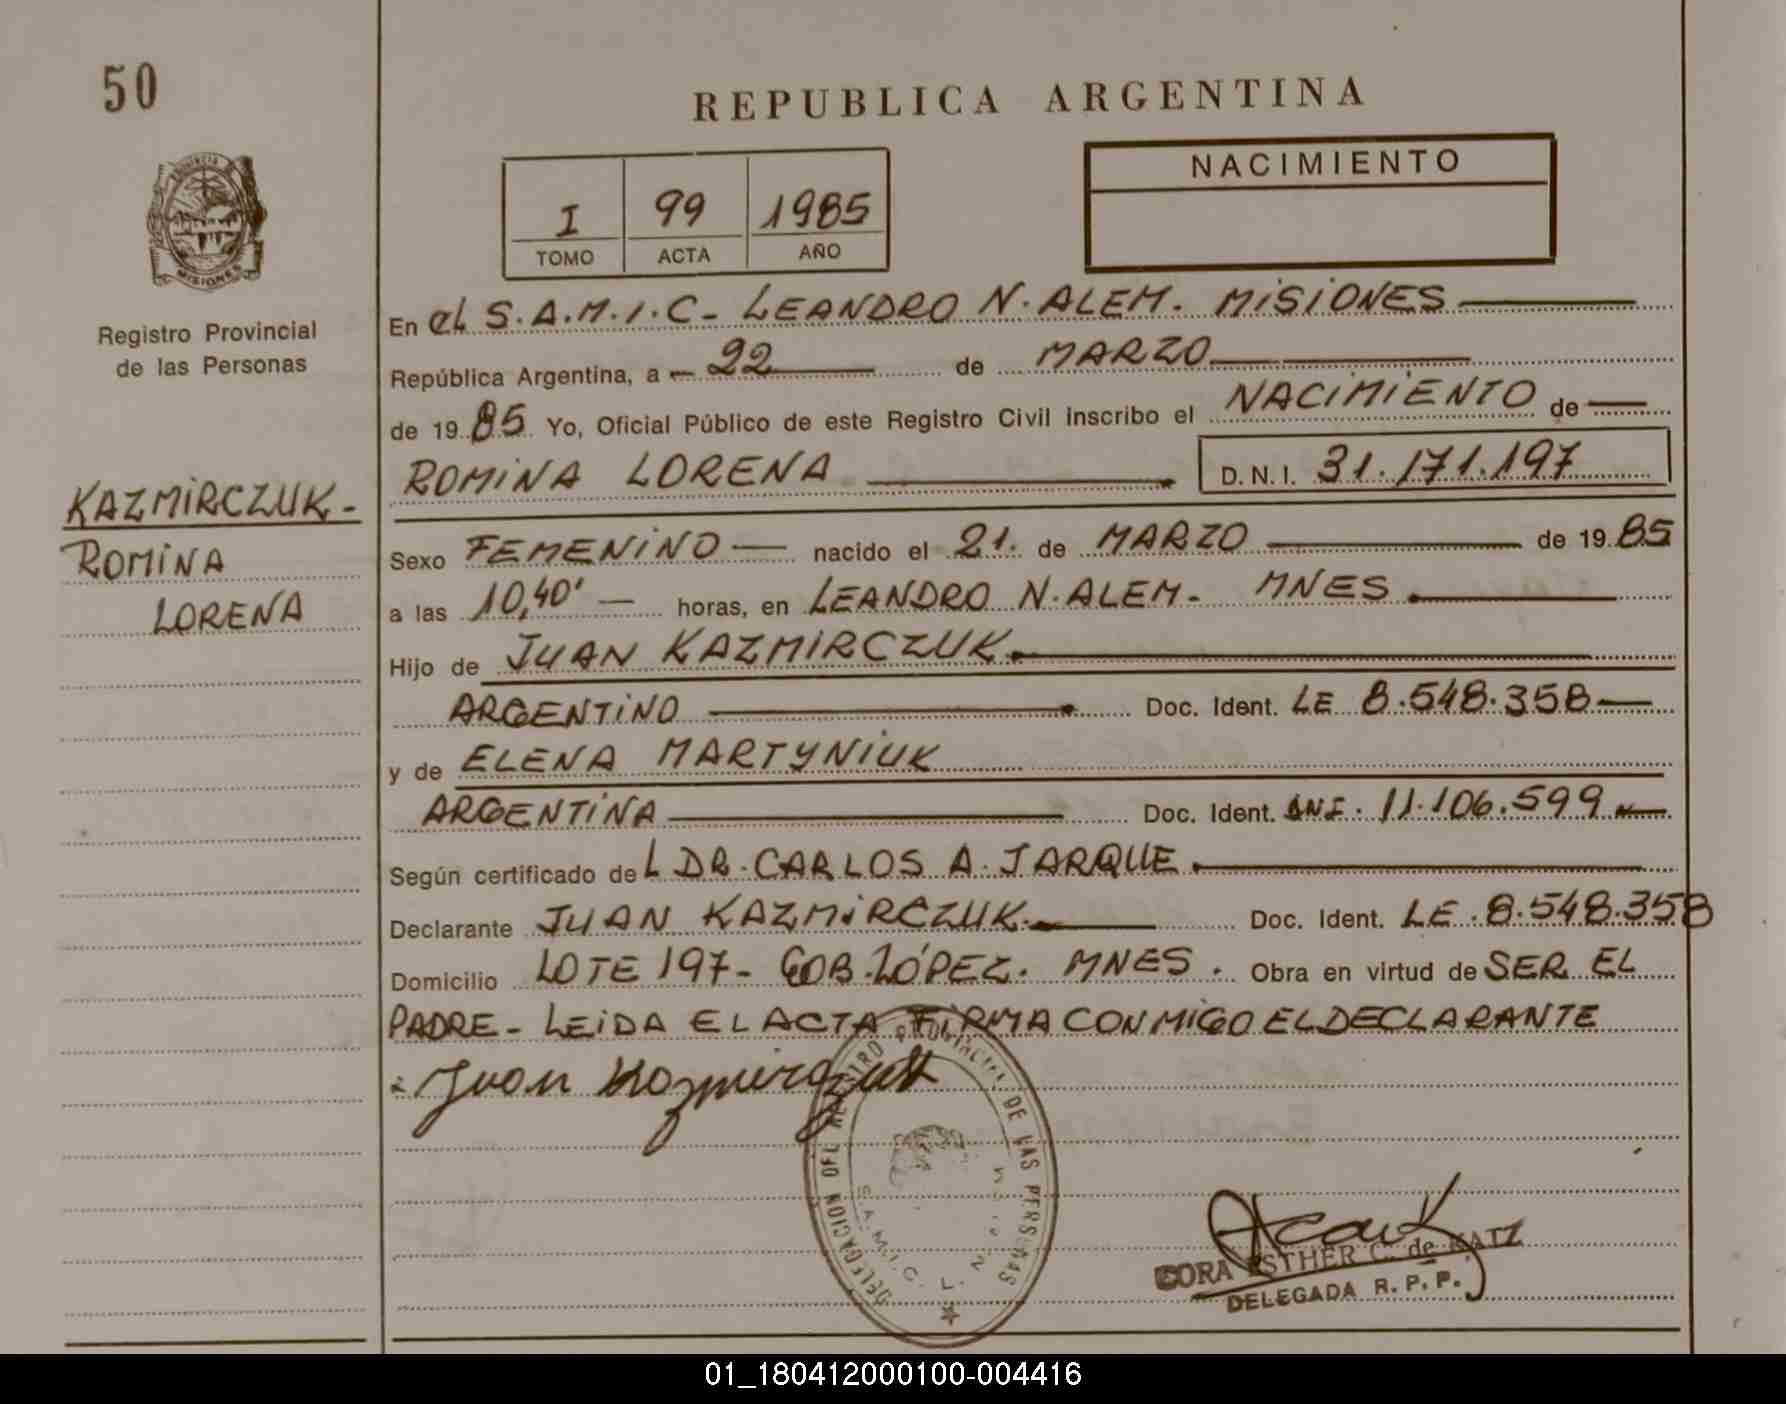 50
REPUBLICA ARGENTINA
PROVINCIA
MISIONES
Registro Provincial
de las Personas
I 99 1985
TOMO ACTA AÑO
NACIMIENTO
En el S.A.M.I.C- LEANDRO N. ALEM. MISIONES
República Argentina, a - 22 de MARZO
de 1985 Yo, Oficial Público de este Registro Civil inscribo el NACIMIENTO de
ROMINA LORENA D.N.I. 31.171.197
KAZMIRCZUK-
ROMINA
LORENA
Sexo FEMENINO nacido el 21. de MARZO de 1985
a las 10,40' horas, en LEANDRO N. ALEM. MNES
Hijo de JUAN KAZMIRCZUK
ARGENTINO Doc. Ident. LE 8.548.358
y de ELENA MARTYNIUK
ARGENTINA Doc. Ident. DNI. 11.106.599
Según certificado del DR. CARLOS A. JARQUE
Declarante JUAN KAZMIRCZUK Doc. Ident. LE. 8.548.358
Domicilio LOTE 197- GOB. LÓPEZ. MNES. Obra en virtud de SER EL
PADRE- LEIDA EL ACTA FIRMA CONMIGO EL DECLARANTE
Juan Kazmirczuk
DELEGACION DEL REGISTRO PROVINCIAL DE LAS PERSONAS
S.A.M.I.C. L. N.
CORA ESTHER C. de KATZ
DELEGADA R.P.P.
01_180412000100-004416